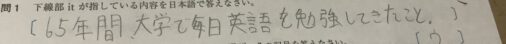 問1 下線部 it が指している内容を日本語で答えなさい。
〔65年間大学で毎日英語を勉強してきたこと。〕
〔ウ〕